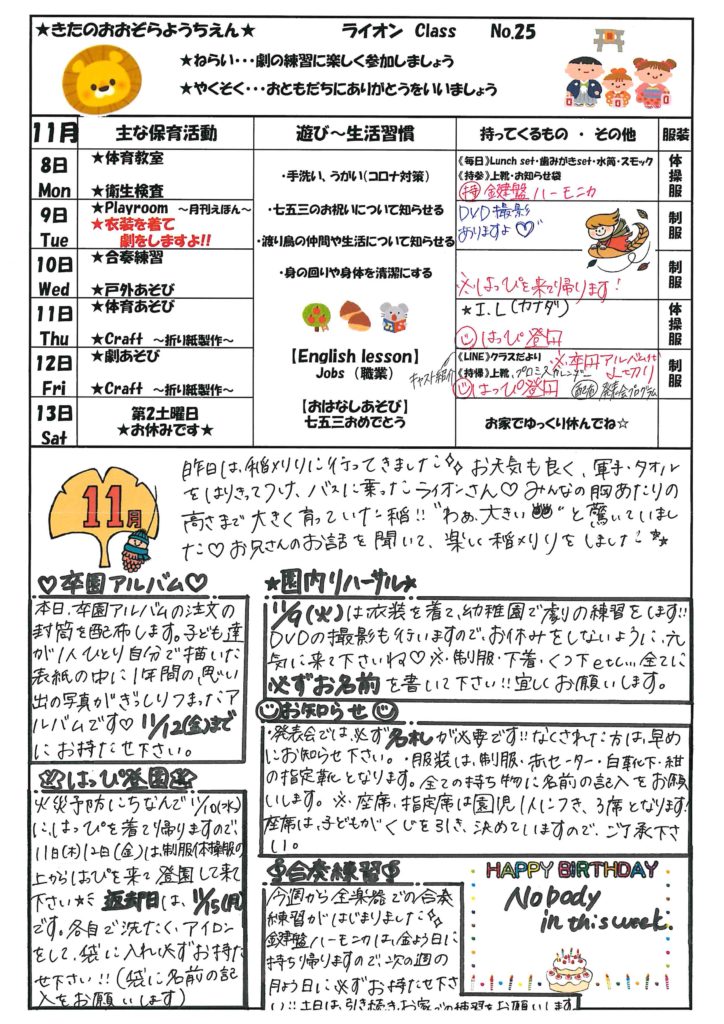 ★きたのおおぞらようちえん★ ライオン Class No.25
★ねらい・・・劇の練習に楽しく参加しましょう
★やくそく・・・おともだちにありがとうをいいましょう
11月 主な保育活動 遊び～生活習慣 持ってくるもの ・ その他 服装
8日 Mon
★体育教室
★衛生検査
9日 Tue
★Playroom ～月刊えほん～
★衣装を着て
劇をしますよ!!
10日 Wed
★合奏練習
★戸外あそび
11日 Thu
★体育あそび
★Craft ～折り紙製作～
12日 Fri
★劇あそび
★Craft ～折り紙製作～
13日 Sat
第2土曜日
★お休みです★
・手洗い、うがい(コロナ対策)
・七五三のお祝いについて知らせる
・渡り鳥の仲間や生活について知らせる
・身の回りや身体を清潔にする
【English lesson】
Jobs （職業）
【おはなしあそび】
七五三おめでとう
《毎日》Lunch set・歯みがきset・水筒・スモック
《持参》上靴・お知らせ袋
持 鍵盤ハーモニカ
DVD撮影
ありますよ♡
※はっぴを来て帰ります!
★I.L(カナダ)
はっぴ登園
キャスト紹介
《LINE》クラスだより ※卒園アルバム〆切り
《持帰》上靴、プロミスカレンダー
はっぴ登園 配布 発表会プログラム
お家でゆっくり休んでね☆
体操服
制服
制服
体操服
制服
11月
昨日は、稲刈りに行ってきました お天気も良く、軍手・タオル
をはりきってつけ、バスに乗ったライオンさん♡ みんなの胸あたりの
高さまで大きく育っていた稲!! "わぁ、大きい"と驚いていまし
た♡お兄さんのお話を聞いて、楽しく稲刈りをしました
♡卒園アルバム♡
本日、卒園アルバムの注文の
封筒を配布します。子ども達
が1人ひとり自分で描いた
表紙の中に1年間の思い
出の写真がぎっしりつまったア
ルバムです♡ 11/12(金)まで
にお持たせ下さい。
★園内リハーサル★
11/9(火)は衣装を着て、幼稚園で劇の練習をします!!
DVDの撮影も行いますので、お休みをしないように、元
気に来て下さいね♡※・制服・下着・くつ下etc...全てに
必ずお名前を書いて下さい!! 宜しくお願いします。
お知らせ
・発表会では、必ず名札が必要です!!なくされた方は、早め
にお知らせ下さい。・服装は、制服・赤セーター・白靴下・紺
の指定靴となります。全ての持ち物に名前の記入をお願
いします。※・座席、指定席は園児1人につき、3席となります!
座席は、子どもがくじを引き、決めていますので、ご了承下さ
い。
はっぴ登園
火災予防にちなんで11/10(水)
に、はっぴを着て帰りますので、
11日(木)12日(金)は制服(体操服)の
上からはっぴを来て登園して来て
下さい 返却日は、11/15(月)
です。各自で洗たく、アイロン
をして、袋に入れ必ずお持た
せ下さい!! (袋に名前の記
入をお願いします)
合奏練習
今週から全楽器での合奏
練習がはじまりました
鍵盤ハーモニカは、金よう日に
持ち帰りますので、次の週の
月よう日に必ずお持たせ下さ
い!!土日は、引き続き、お家での練習をお願いします。
HAPPY BIRTHDAY
Nobody
in this week.